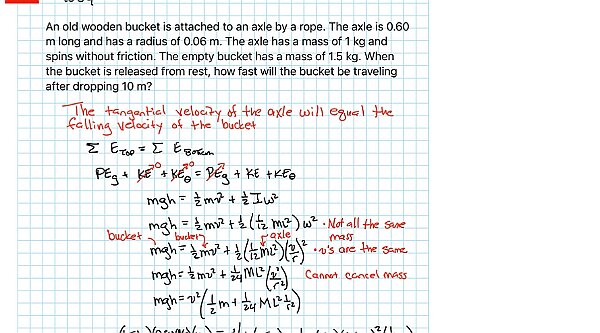 An old wooden bucket is attached to an axle by a rope. The axle is 0.60
m long and has a radius of 0.06 m. The axle has a mass of 1 kg and
spins without friction. The empty bucket has a mass of 1.5 kg. When
the bucket is released from rest, how fast will the bucket be traveling
after dropping 10 m?
The tangential velocity of the axle will equal the
falling velocity of the bucket
Σ E Top = Σ E Bottom
PEg + KE⁰ + KEθ⁰ = PEg + KE + KEθ
mgh = ½mv² + ½Iω²
mgh = ½mv² + ½(1/12 mL²)ω² • Not all the same
mass
bucket bucket axle
mgh = ½mv² + ½(1/12 mL²)(v/r)² • v's are the same
mgh = ½mv² + 1/24 ML²(v²/r²) Cannot cancel mass
mgh = v²(½m + 1/24 ML² 1/r²)